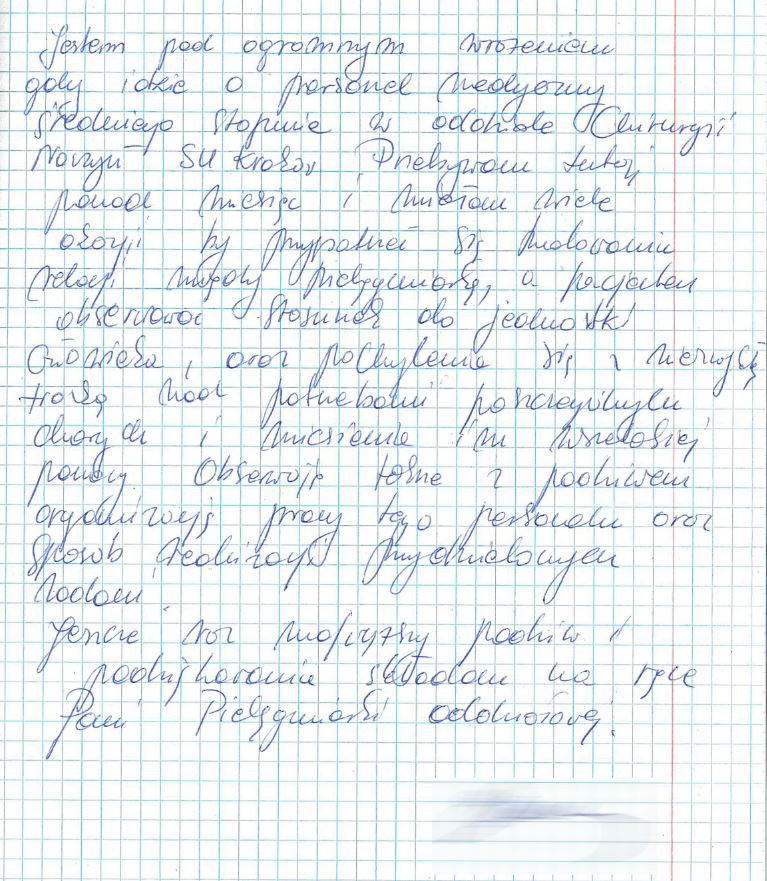 Jestem pod ogromnym wrażeniem
gdy idzie o personel medyczny
średniego stopnia w oddziale Chirurgii
Naczyń SU Kraków. Przebywam tutaj
ponad miesiąc i miałam wiele
okazji by przypatrzeć się budowaniu
relacji między pielęgniarką, a pacjentem
obserwować stosunek do jednostki
człowieka, oraz pochylenie się z niezwykłą
troską nad potrzebami poszczególnych
chorych i niesienie im wszelakiej
pomocy Obserwuję także z podziwem
organizację pracy tego personelu oraz
sposób realizacji przydzielonych
zadań.
Jeszcze raz najwyższy podziw i
podziękowanie składam na ręce
Pani Pielęgniarki oddziałowej.